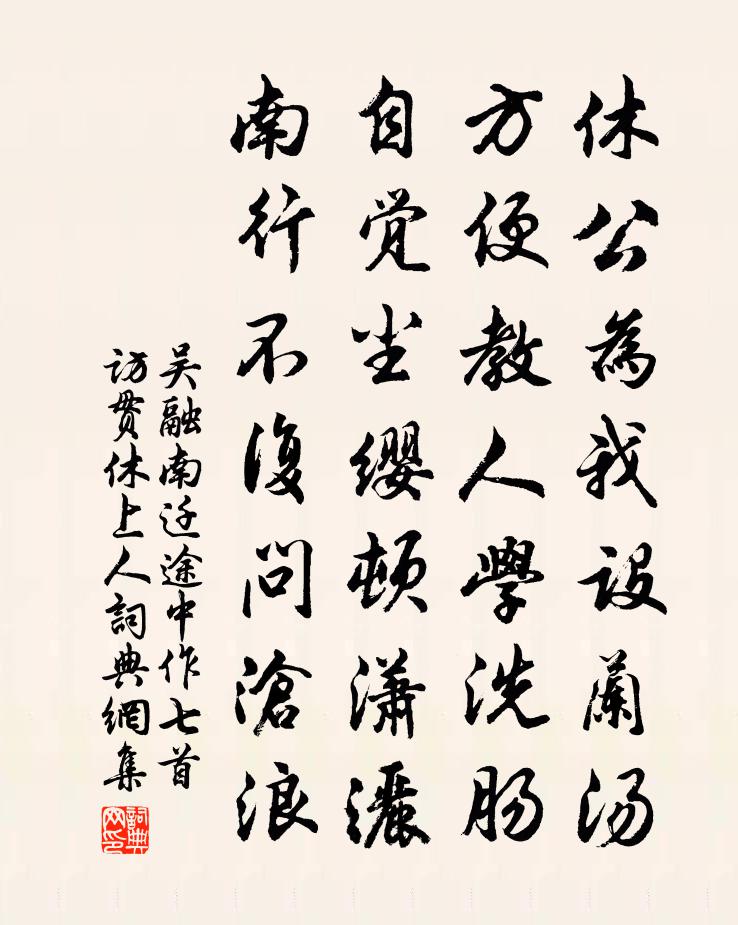 休公為我設蘭汤
方便教人學洗肠
自觉尘缨顿潇灑
南行不復问滄浪
吴融南迁途中作七首
访贯休上人詞典網集
詞典网印